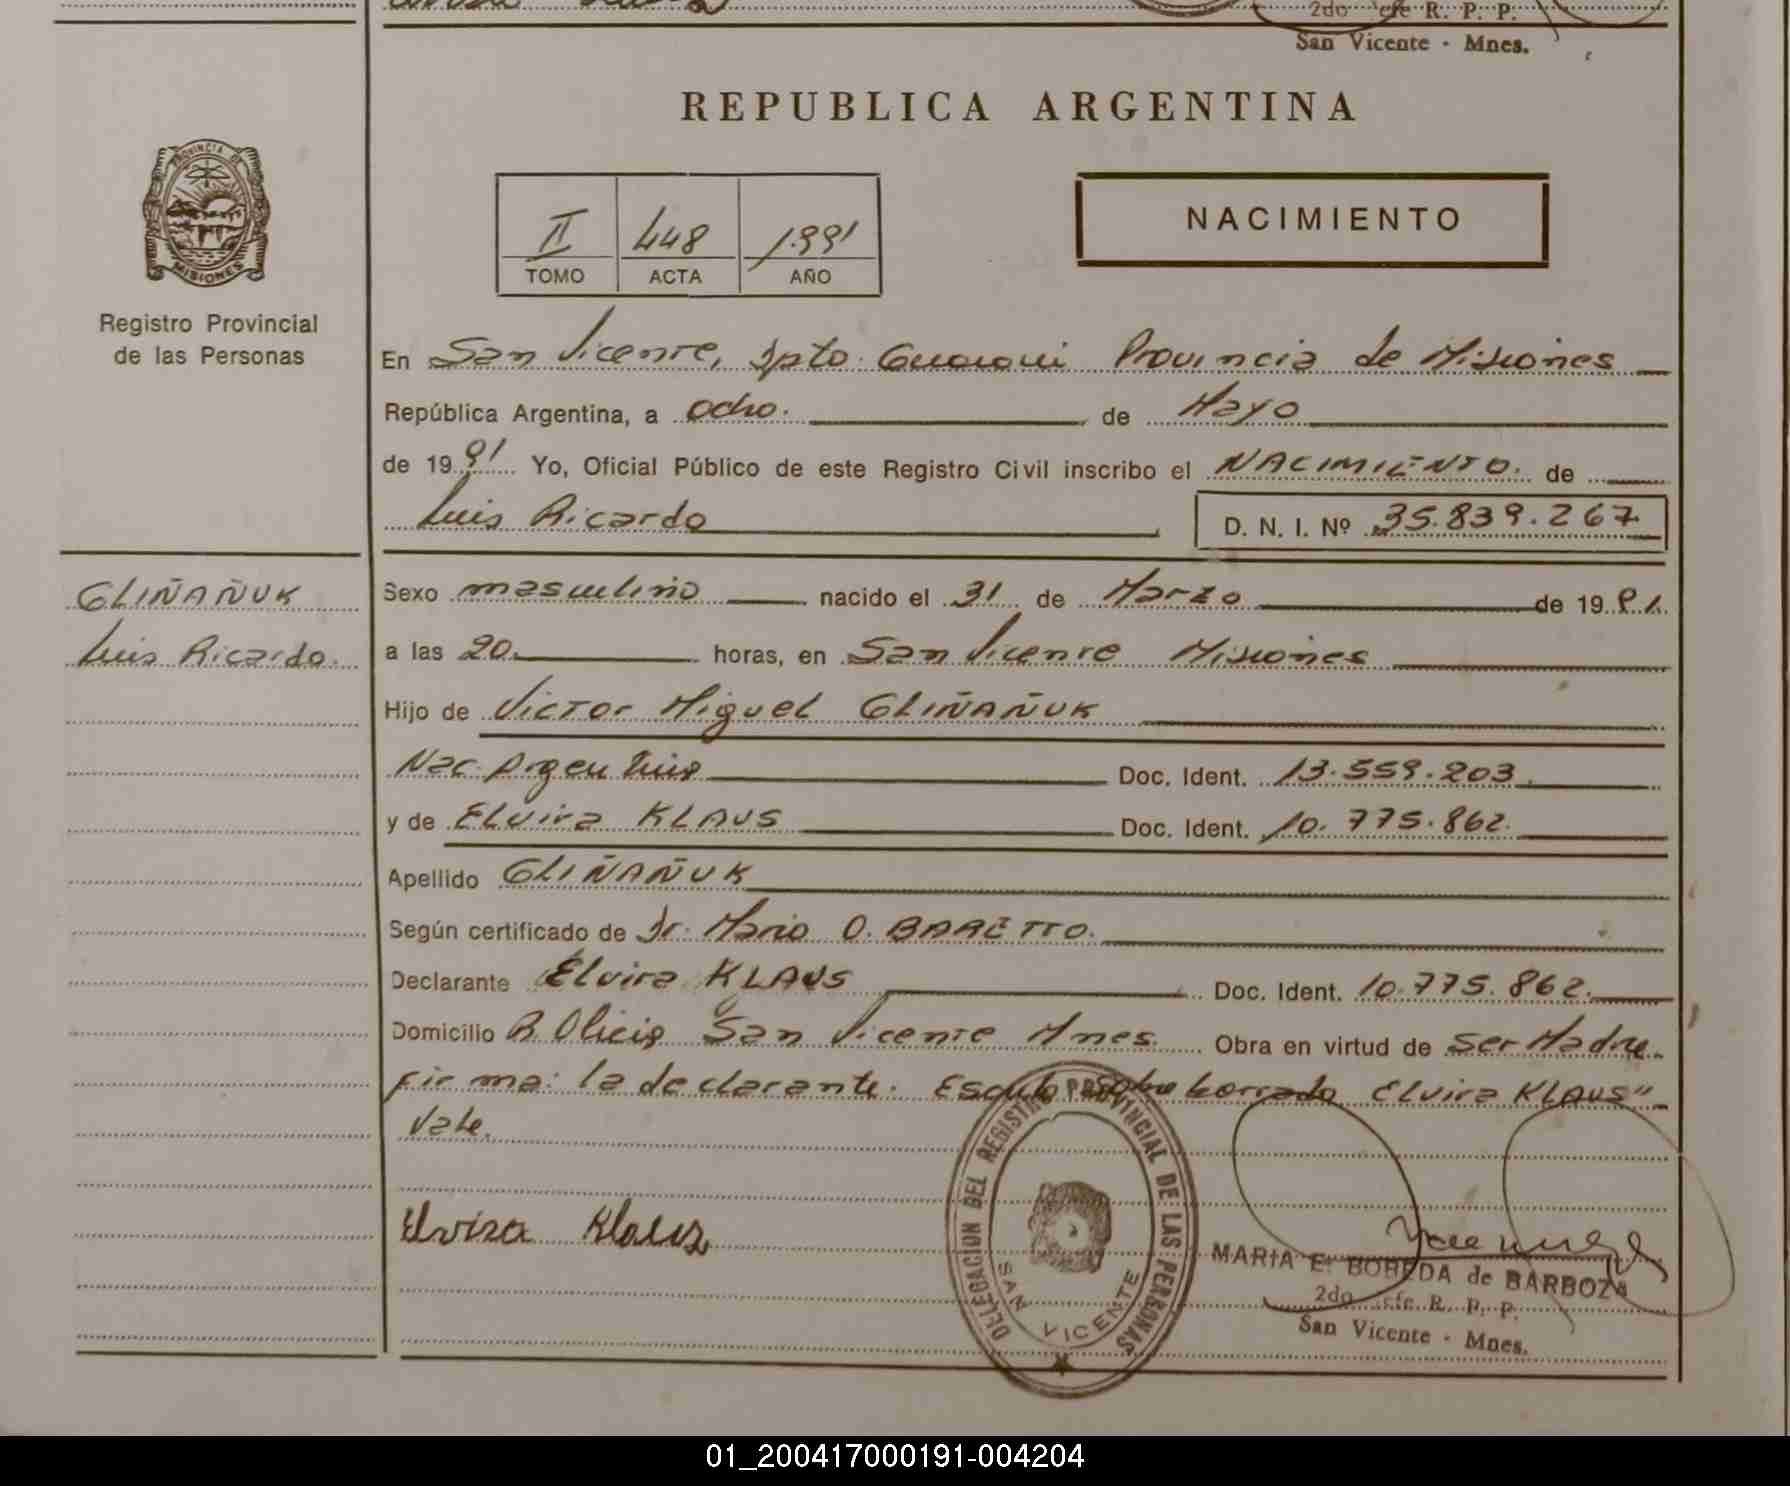 2do Jefe R. P. P.
San Vicente - Mnes.
REPUBLICA ARGENTINA
PROVINCIA DE
MISIONES
Registro Provincial
de las Personas
II 448 1991
TOMO ACTA AÑO
NACIMIENTO
En San Vicente, Dpto. Guaraní Provincia de Misiones
República Argentina, a ocho. de Mayo
de 1991 Yo, Oficial Público de este Registro Civil inscribo el NACIMIENTO. de
Luis Ricardo D. N. I. Nº 35.839.267
GLIÑAÑUK
Luis Ricardo.
Sexo masculino nacido el 31 de Marzo de 1991.
a las 20 horas, en San Vicente Misiones
Hijo de Victor Miguel GLIÑAÑUK
Nac. Argentino Doc. Ident. 13.559.203.
y de Elvira KLAUS Doc. Ident. 10.775.862.
Apellido GLIÑAÑUK
Según certificado de Dr. Mario O. BARETTO.
Declarante Elvira KLAUS Doc. Ident. 10.775.862.
Domicilio San Vicente Mnes. Obra en virtud de ser Madre.
firma: la declarante. sobre borrado Elvira KLAUS"
Vale.
Elvira Klaus
DELEGACION DEL REGISTRO PROVINCIAL DE LAS PERSONAS
SAN VICENTE
MARIA E. BOBEDA de BARBOZA
2do Jefe R. P. P.
San Vicente - Mnes.
01_200417000191-004204